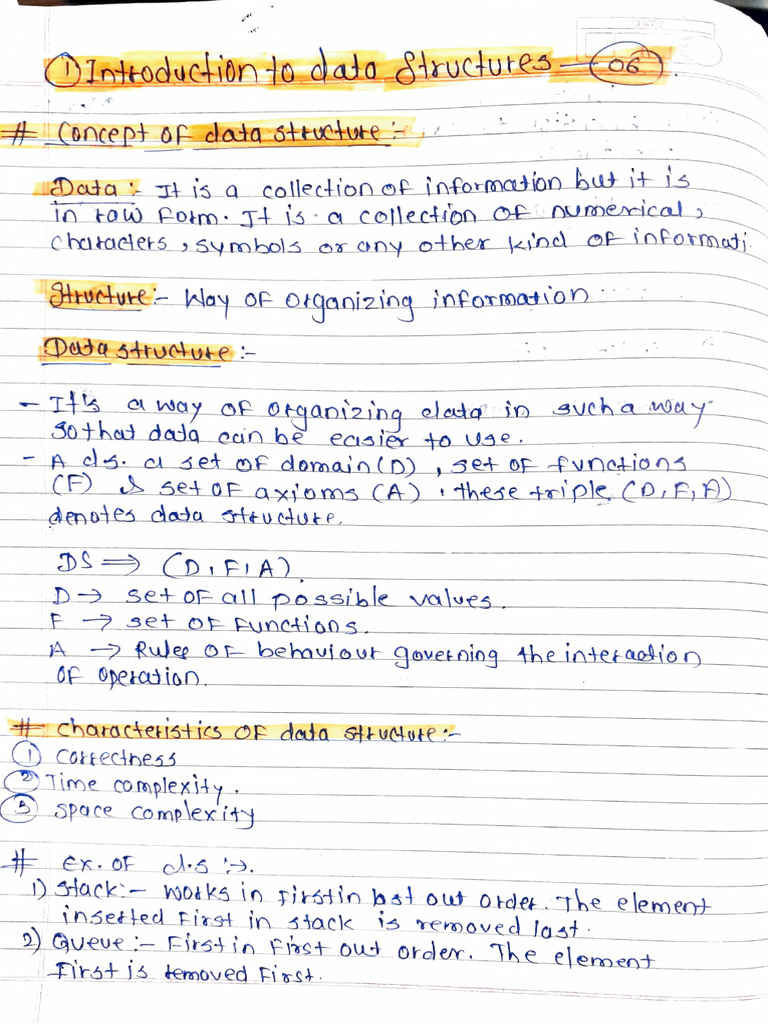 ① Introduction to data Structures — 06
# Concept of data structure :-
Data :- It is a collection of information but it is
in raw form. It is a collection of numerical,
characters, symbols or any other kind of informati
Structure :- Way of organizing information
Data structure :-
- It's a way of organizing data in such a way
so that data can be easier to use.
- A d.s. a set of domain (D), set of functions
(F) & set of axioms (A). these triple (D, F, A)
denotes data structure.
DS ⟹ (D, F, A).
D → set of all possible values.
F → set of functions.
A → Rules of behaviour governing the interaction
of operation.
# characteristics of data structure :-
① Correctness
② Time complexity.
③ space complexity
# ex. of d.s :→.
1) Stack :- works in first in last out order. The element
inserted first in stack is removed last.
2) Queue :- First in First out order. The element
First is removed First.